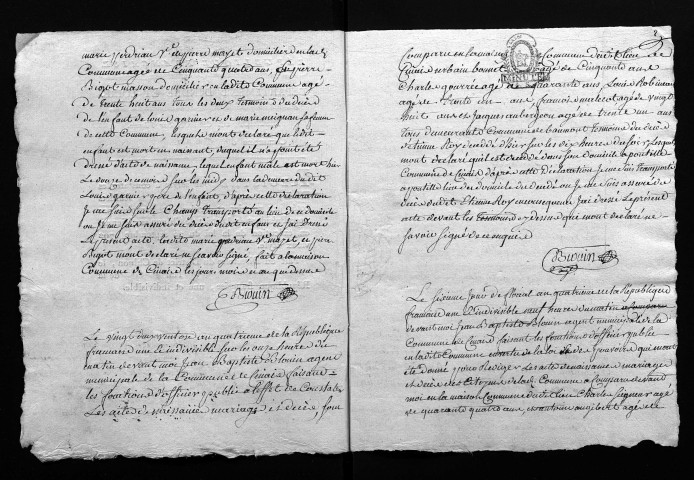 marie perdriau Ve de pierre mayet domicilié en la de
Commune agée de Cinquante quatre ans, et pierre
Bigot masson demeurant en laditte Commune agé
de trente huit ans tous les deux temoins du décès
de l'enfant de louis garnier et de marie
de cette Commune, lesquels m'ont declaré que ledit
enfant est mort en naissant, duquel il n'a point été
dressé d'acte de naissance, lequel enfant male est mort hier
le douze de ce mois sur les midy dans la demeure dudit
Louis garnier pere de l'enfant, d'après cette declaration
Je me suis sur le Champ transporté au lieu de ce domicile
où Je me suis assuré du décès dudit enfant et J'ai Dressé
le present acte, laditte marie perdriau Ve mayet et pierre
Bigot m'ont declaré ne savoir signer, fait à la maison
Commune de Cinais les jour mois et an que dessus
Blouin
Le vingt deux ventose an quatrieme de la République
francaise une et indivisible sur les onze heures du
matin devant moi Jean Baptiste Blouin agent
municipale de la Commune de Cinais faisant
les fonctions d'officier public à l'effet de Constater
Les actes de naissance mariages et décès, sont
2
Comparu en la maison Commune dudit lieu de
Cinais urbain bonnet agé de Cinquante ans
Charle gourré agé de quarante ans Louis Robin
agé de trente un ans francois malecot agé de vingt
huit ans et Jaques aubergeon agé de trente un ans
tous demeurants Commune de beaumont temoins du décès
de Etienne Roy decedé d'hier sur les dix heures du soir, Lesquels
m'ont declaré qu'il est decedé dans son domicile à pontille
Commune de Cinais d'après cette declaration Je me suis transporté
à pontille lieu du domicile du decedé où Je me suis assuré du
décès dudit Etienne Roy en consequence J'ai dressé le present
acte devant les temoins cy dessus qui m'ont declaré ne
savoir signer de ce enquis
Blouin
Le sixieme Jour de floréal an quatrieme de la République
francaise une et indivisible neuf heures du matin
devant moi Jean Baptiste Blouin agent municipal de la
Commune de Cinais faisant les fonctions d'officier public
en laditte Commune en vertu de la loi et de pouvoirs qui m'ont
été donné pour rediger les actes de naissance mariages
et décès des Citoyens de la de Commune a comparu devant
moi en la maison Commune dudit lieu Charle Seigneur agé
de quarante quatre ans et antoine agé de